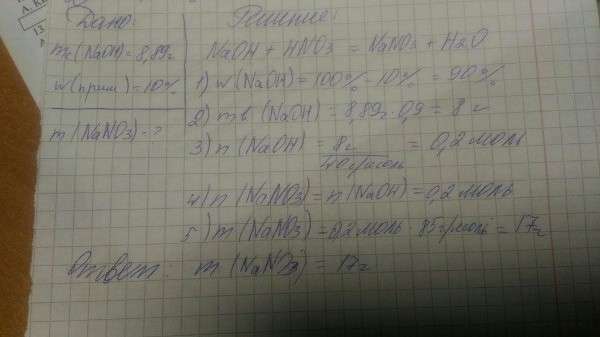 Дано:
mт(NaOH) = 8,89г
w(прим) = 10%
m(NaNO3) - ?
Решение:
NaOH + HNO3 = NaNO3 + H2O
1) w(NaOH) = 100% - 10% = 90%
2) m в (NaOH) = 8,89г · 0,9 = 8 г
3) n (NaOH) = 8г = 0,2 моль
40г/моль
4) n (NaNO3) = n (NaOH) = 0,2 моль
5) m (NaNO3) = 0,2 моль · 85г/моль = 17г
Ответ: m (NaNO3) = 17г
13